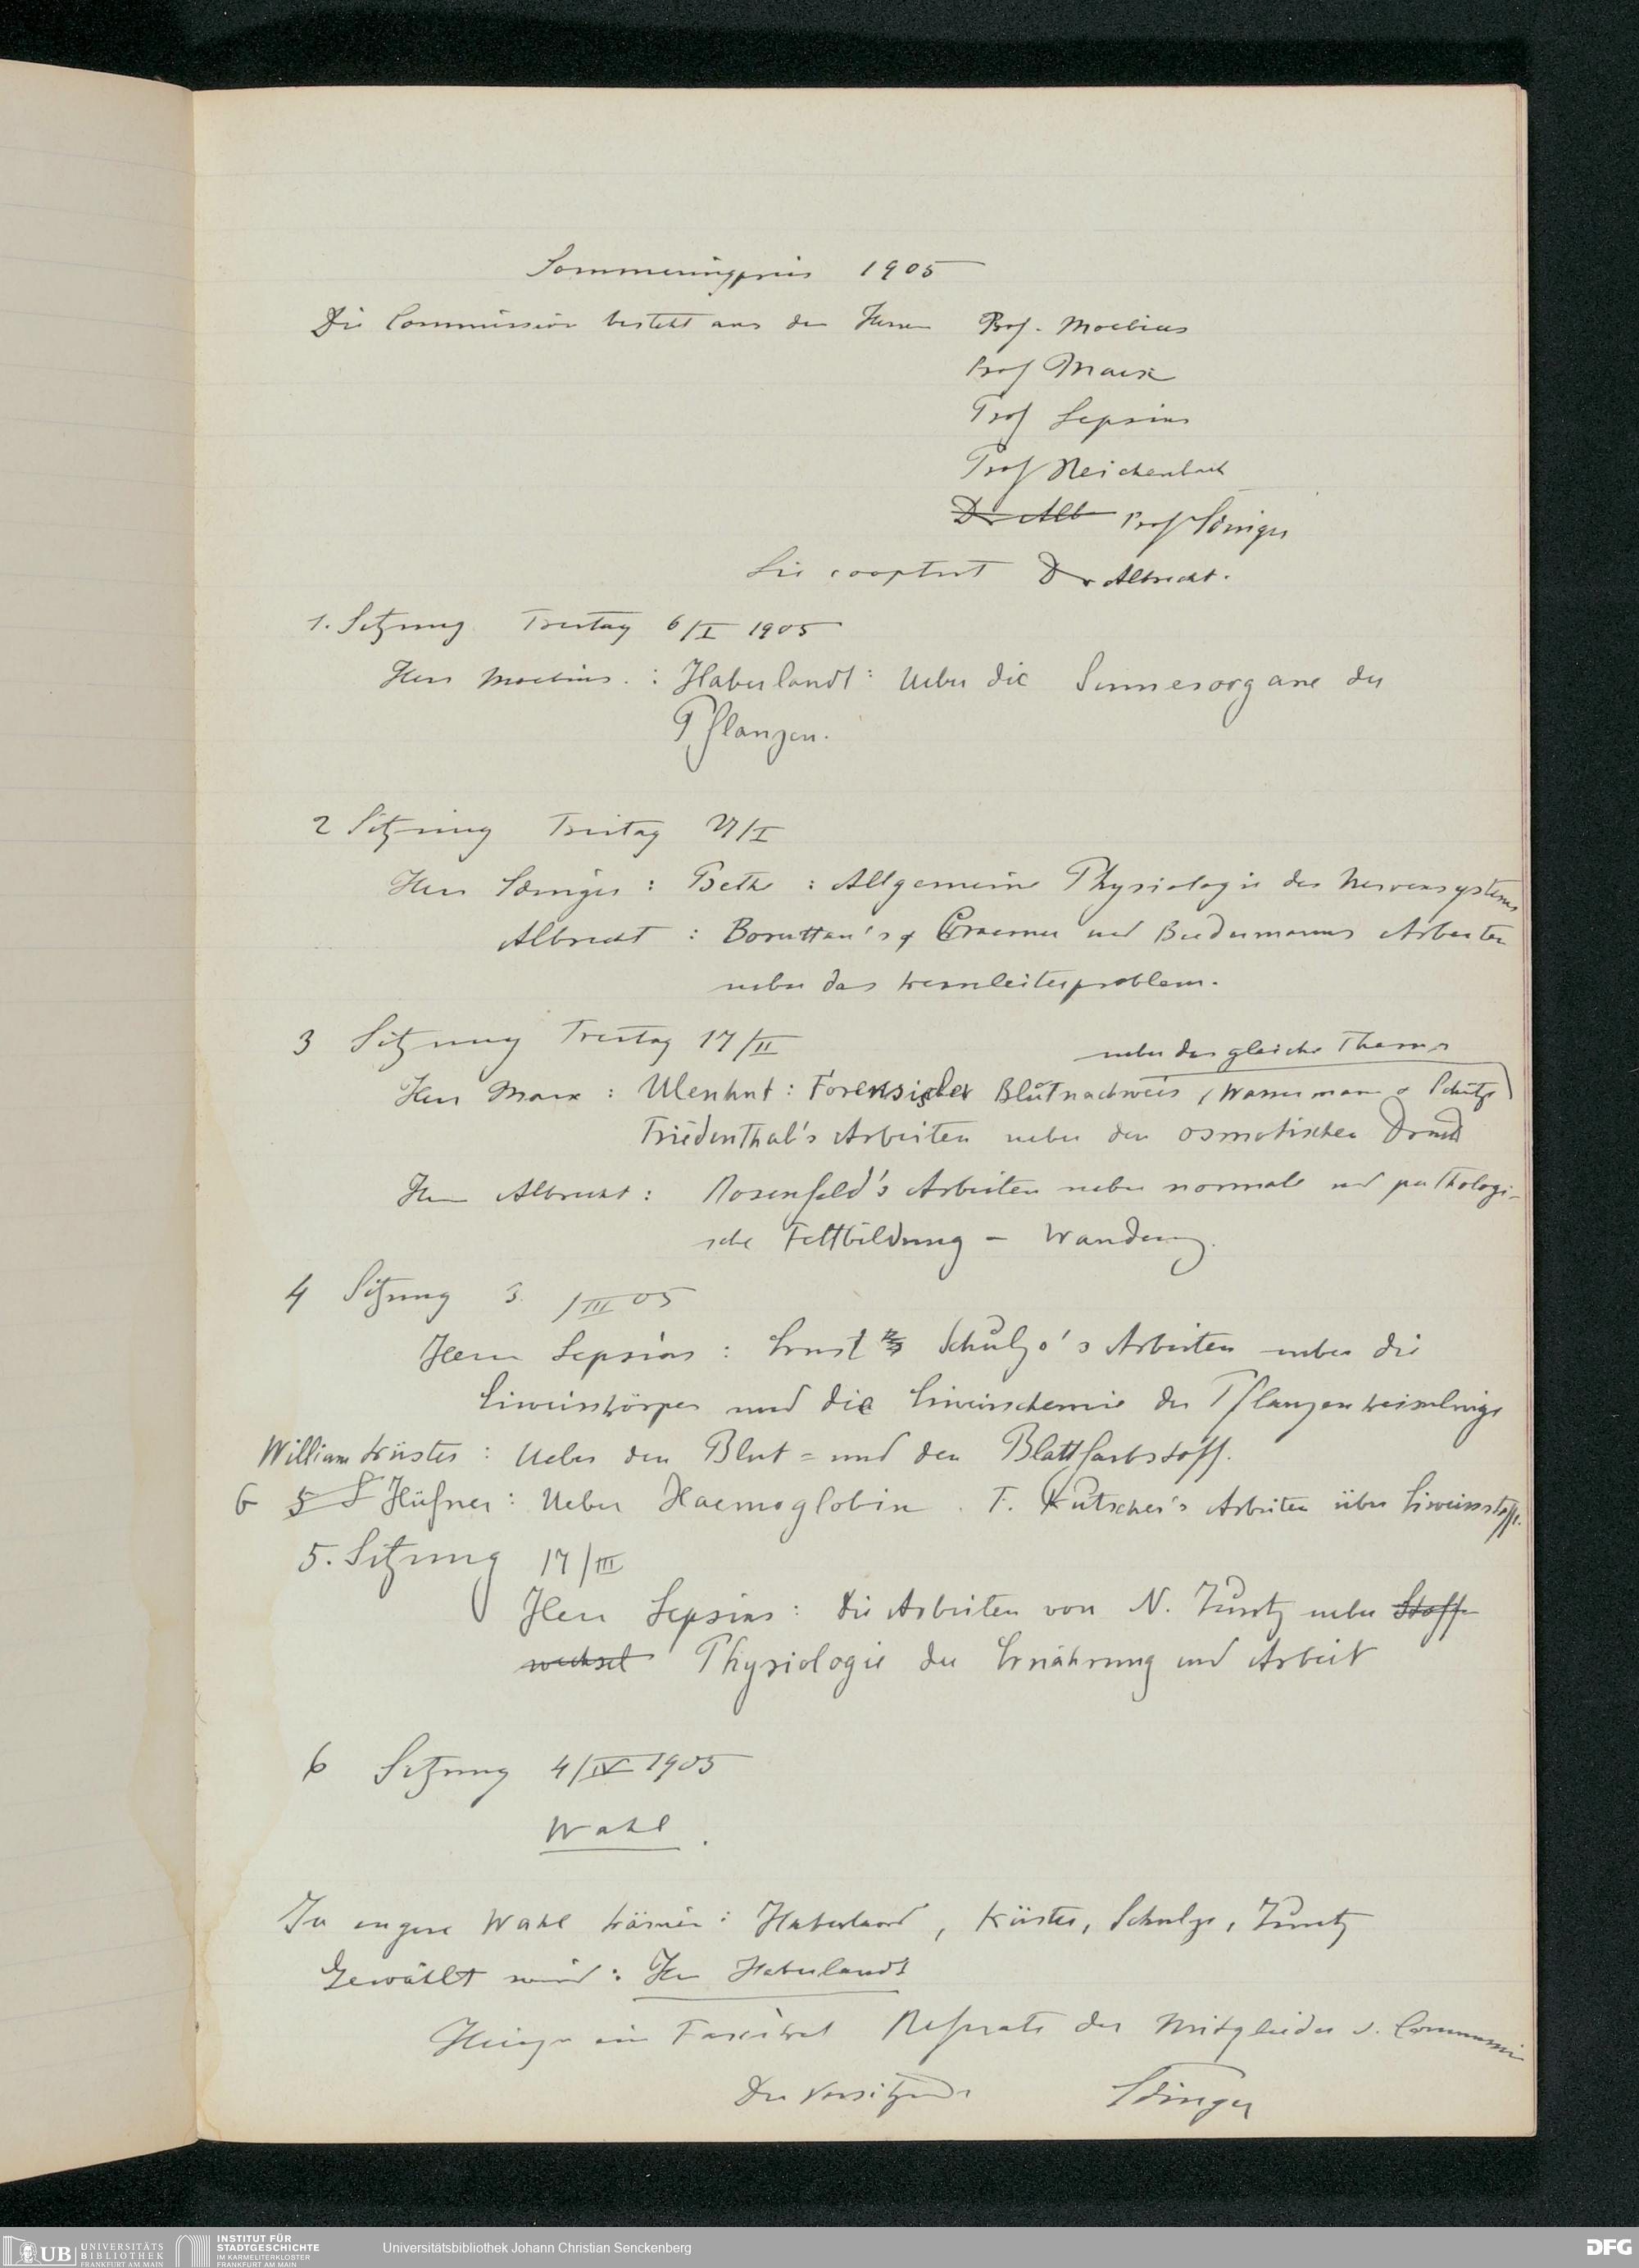 Sommeringpreis 1905
Die Commission besteht aus den Herren Prof. Moebius
Prof Marx
Prof Lepsius
Prof Reichenbach
Dr Alb Prof Edinger
Sie cooptirt Dr Albrecht.
1. Sitzung Freitag 6/I 1905
Herr Moebius. : Haberlandt: Ueber die Sinnesorgane der
Pflanzen.
2 Sitzung Freitag 27/I
Herr Edinger : Bethe : Allgemeine Physiologie des Nervensystems
Albrecht : Boruttau's & Craemer und Biedermanns Arbeiten
ueber das Kernleiterproblem.
3 Sitzung Freitag 17/II
ueber das gleiche Thema
Herr Marx : Ulenhut : Forensischer Blutnachweis (Wassermann & Schütze)
Friedenthal's Arbeiten ueber den osmotischen Druck
Herr Albrecht : Rosenfeld's Arbeiten ueber normale und pathologi-
sche Fettbildung - Wanderung.
4 Sitzung 3. /III 05
Herr Lepsius : Ernst Schulze's Arbeiten ueber die
Eiweisskörper und die Eiweisschemie der Pflanzenkeimlinge
William Küster : Ueber den Blut = und den Blattfarbstoff.
G Hüfner : Ueber Haemoglobin . F. Kutscher's Arbeiten über Eiweissstoffe.
5. Sitzung 17/III
Herr Lepsius : Die Arbeiten von N. Zuntz ueber Stoff
wechsel Physiologie der Ernährung und Arbeit
6 Sitzung 4/IV 1905
Wahl.
In engere Wahl kämen : Haberland, Küster, Schulze, Zuntz
Gewählt wird : Herr Haberlandt
Hiezu ein Fascikel Referate der Mitglieder d. Commissi
Der Vorsitzende Edinger
UB UNIVERSITÄTS
BIBLIOTHEK
FRANKFURT AM MAIN
INSTITUT FÜR
STADTGESCHICHTE
IM KARMELITERKLOSTER
FRANKFURT AM MAIN
Universitätsbibliothek Johann Christian Senckenberg
DFG